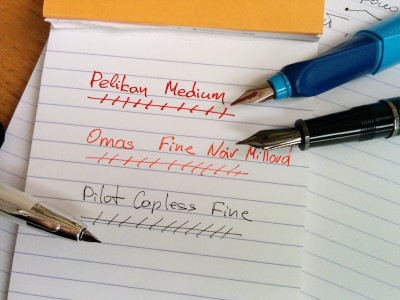 Pelikan Medium
Omas Fine Noir Millord
Pilot Capless Fine